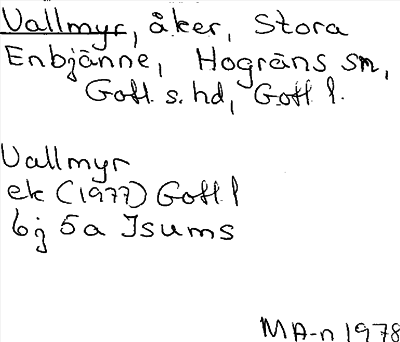 Vallmyr, åker, Stora
Enbjänne, Hogräns sn,
Gotl. s. hd, Gotl l.
Vallmyr
ek (1977) Gotl l
6j 5a Isums
MA-n 1978